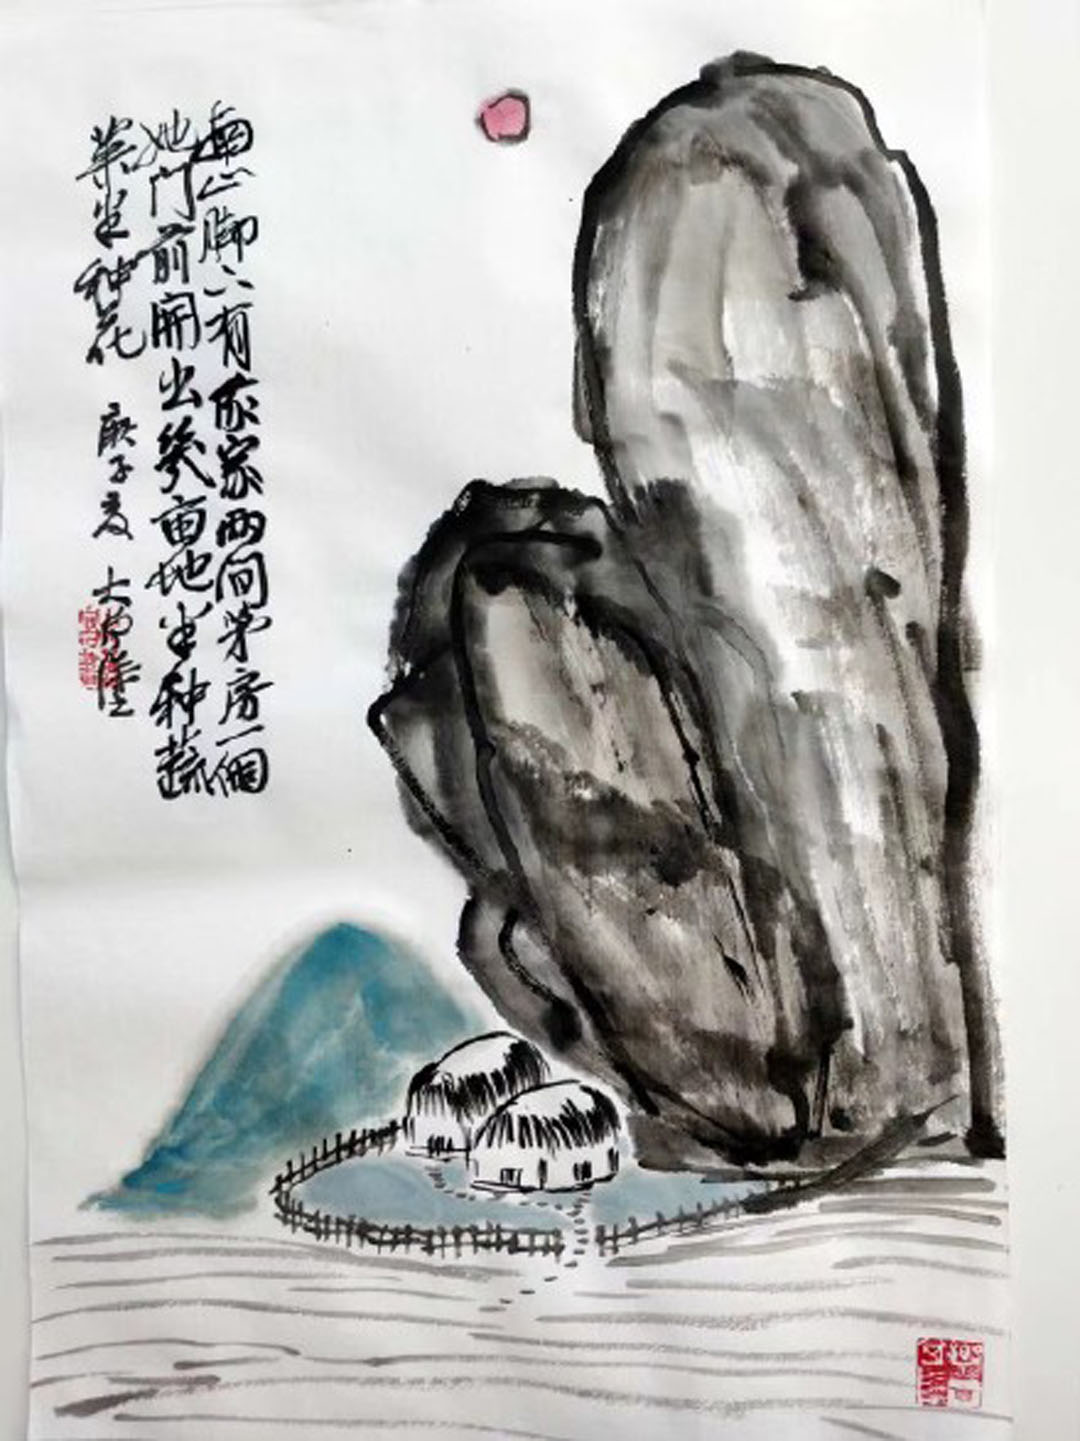 南山脚下有我家两间茅房一個
她门前開出幾亩地半种蔬
菜半种花
庚子夏
大